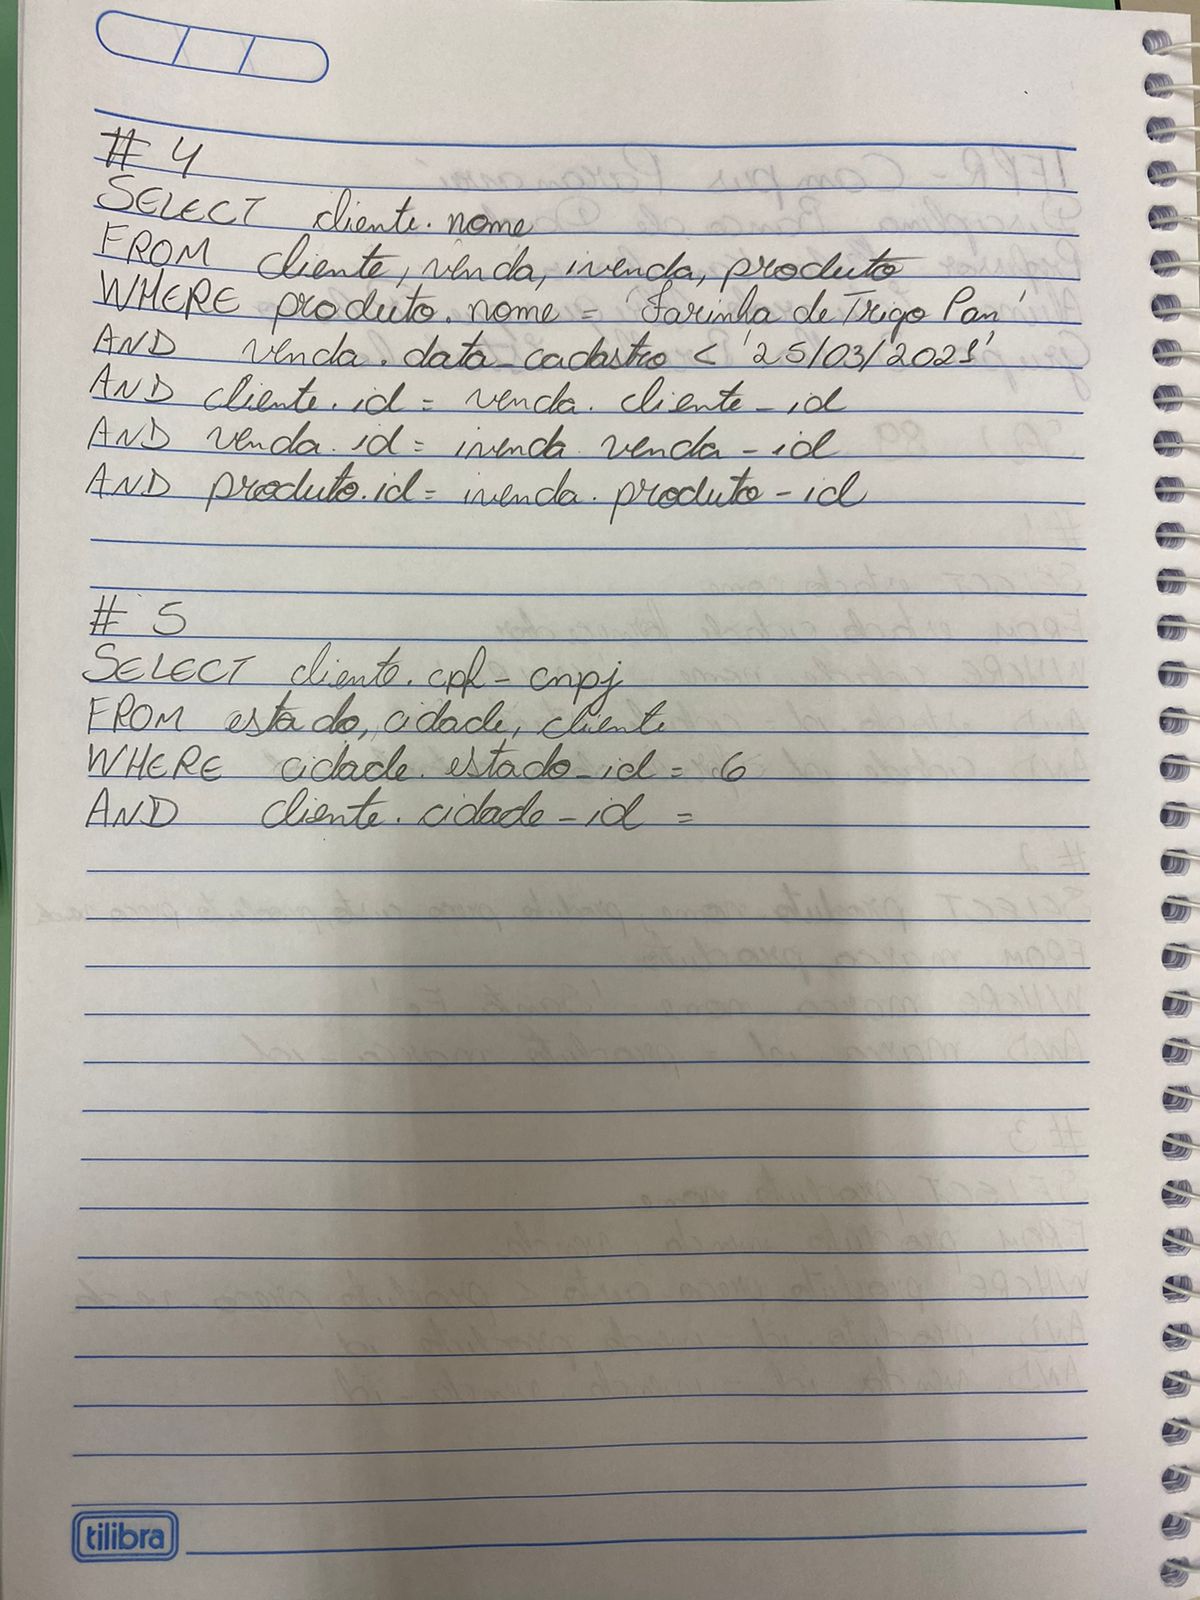 # 4
SELECT cliente.nome
FROM cliente, venda, ivenda, produto
WHERE produto.nome = 'Farinha de Trigo Pan'
AND venda.data_cadastro < '25/03/2021'
AND cliente.id = venda.cliente_id
AND venda.id = ivenda.venda_id
AND produto.id = ivenda.produto_id
# 5
SELECT cliente.cpf_cnpj
FROM estado, cidade, cliente
WHERE cidade.estado_id = 6
AND cliente.cidade_id =
tilibra